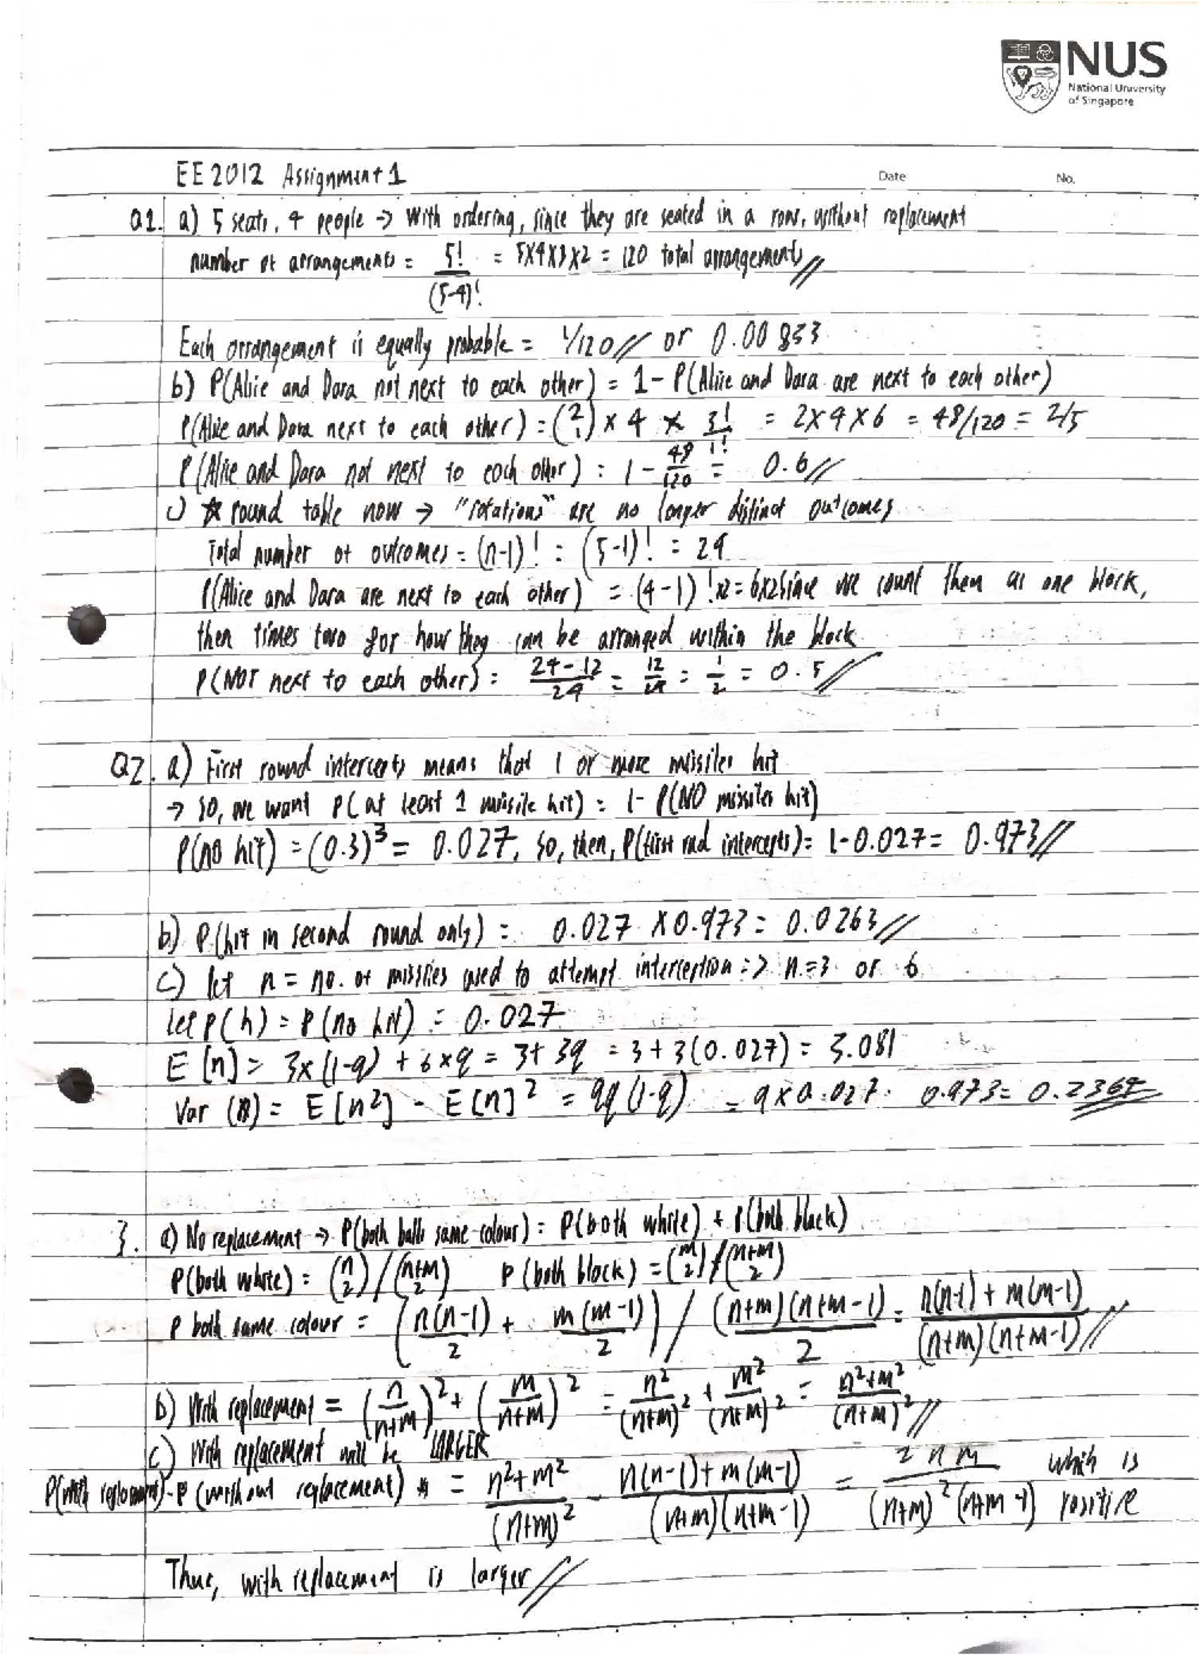 NUS
National University
of Singapore
EE2012 Assignment 1
Date
No.
Q1. a) 5 seats, 4 people -> With ordering, since they are seated in a row, without replacement
number of arrangements = 5!/(5-4)! = 5x4x3x2 = 120 total arrangements //
Each arrangement is equally probable = 1/120 // or 0.00833
b) P(Alice and Dara not next to each other) = 1 - P(Alice and Dara are next to each other)
P(Alice and Dara next to each other) = (2 1) x 4 x 3!/1! = 2 x 4 x 6 = 48/120 = 2/5
P(Alice and Dara not next to each other) = 1 - 48/120 = 0.6 //
c) round table now -> "rotations" are no longer distinct outcomes
Total number of outcomes = (n-1)! = (5-1)! = 24
P(Alice and Dara are next to each other) = (4-1)! x2 = 6x2 since we count them as one block,
then times two for how they can be arranged within the block
P(NOT next to each other) = (24-12)/24 = 12/24 = 1/2 = 0.5 //
Q2. a) First round intercepts means that 1 or more missiles hit
-> so, we want P(at least 1 missile hit) = 1 - P(NO missiles hit)
P(no hit) = (0.3)³ = 0.027, so, then, P(first rnd intercepts) = 1-0.027 = 0.973 //
b) P(hit in second round only) = 0.027 x 0.973 = 0.0263 //
c) let n = no. of missiles used to attempt interception => n=3 or 6
let P(h) = P(no hit) = 0.027
E[n] = 3x(1-q) + 6xq = 3+3q = 3+3(0.027) = 3.081
Var(n) = E[n²] - E[n]² = 9q(1-q) = 9x0.027· 0.973 = 0.2364
3. a) No replacement -> P(both balls same colour) = P(both white) + P(both black)
P(both white) = (n 2)/(n+m 2) P(both black) = (m 2)/(n+m 2)
P both same colour = (n(n-1)/2 + m(m-1)/2) / (n+m)(n+m-1)/2 = n(n-1)+m(m-1)/(n+m)(n+m-1) //
b) With replacement = (n/n+m)² + (m/n+m)² = n²/(n+m)² + m²/(n+m)² = n²+m²/(n+m)² //
c) With replacement will be LARGER
P(with replacement) - P(without replacement) = n²+m²/(n+m)² - n(n-1)+m(m-1)/(n+m)(n+m-1) = 2nm/(n+m)²(n+m-1) which is positive
Thus, with replacement is larger //